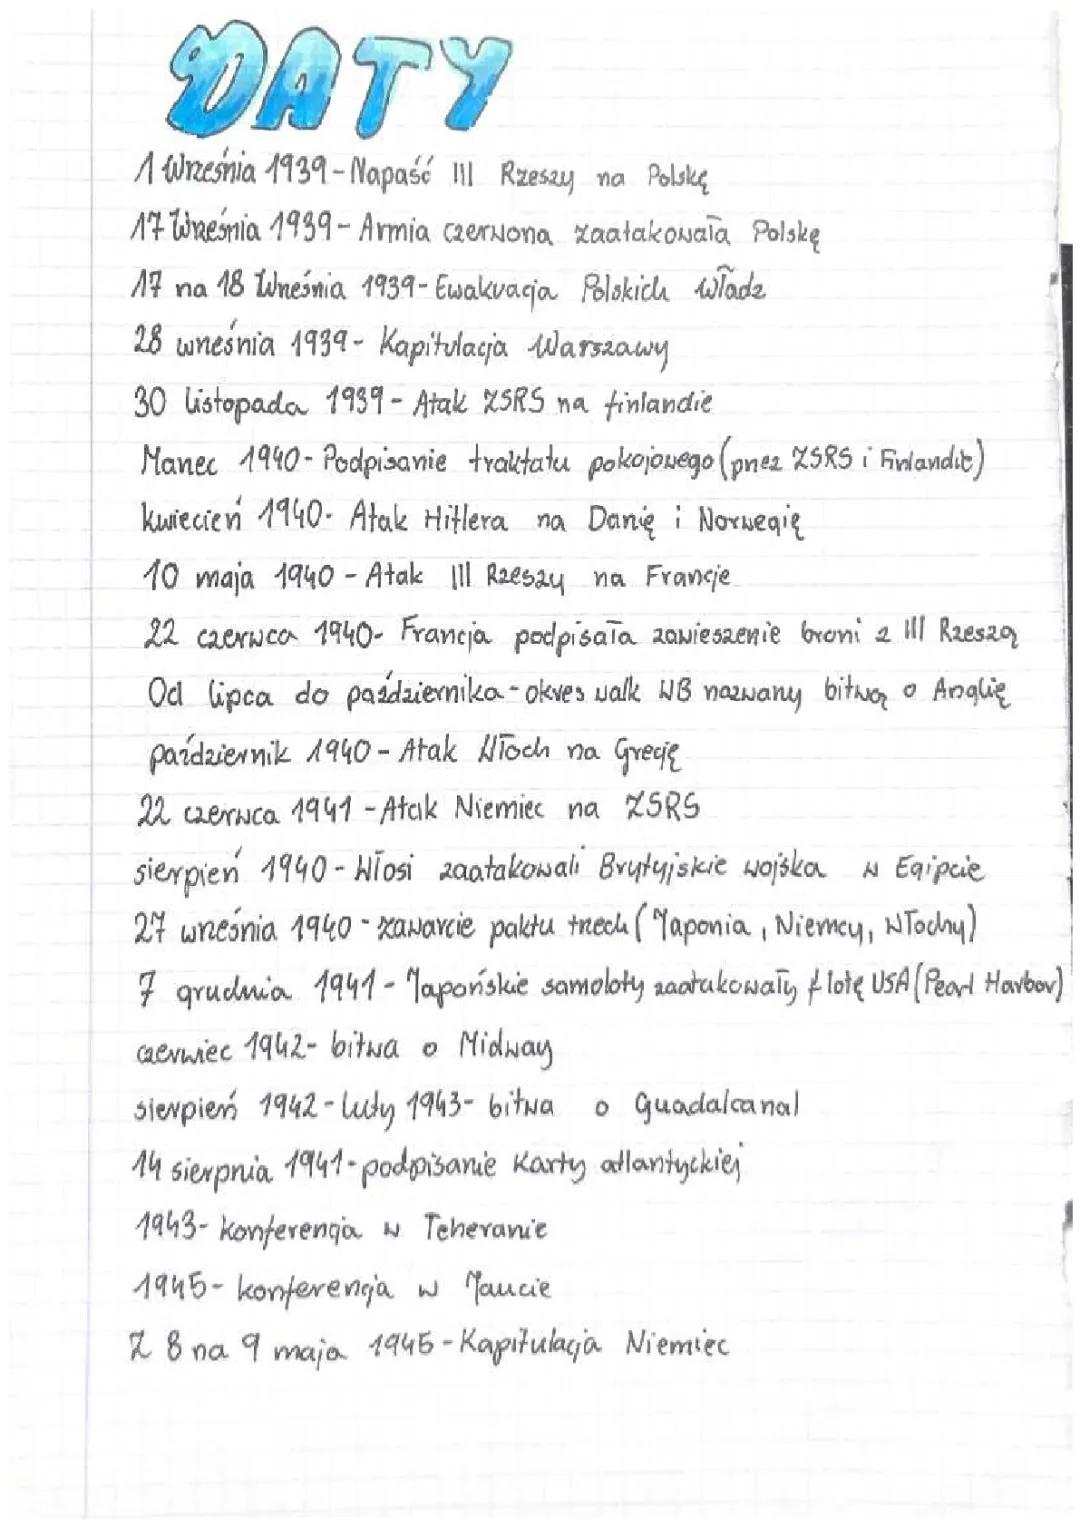 DATY
1 Września 1939 - Napaść III Rzeszy na Polskę
17 Września 1939 - Armia czerwona zaatakowała Polskę
17 na 18 Września 1939 - Ewakuacja Polskich Władz
28 września 1939 - Kapitulacja Warszawy
30 listopada 1939 - Atak ZSRS na finlandie
Marzec 1940 - Podpisanie traktatu pokojowego (przez ZSRS i Finlandię)
kwiecień 1940 - Atak Hitlera na Danię i Norwegię
10 maja 1940 - Atak III Rzeszy na Francje
22 czerwca 1940 - Francja podpisała zawieszenie broni z III Rzeszą
Od lipca do października - okres walk WB nazwany bitwą o Anglię
październik 1940 - Atak Włoch na Grecję
22 czerwca 1941 - Atak Niemiec na ZSRS
sierpień 1940 - Włosi zaatakowali Brytyjskie wojska w Egipcie
27 września 1940 - zawarcie paktu trzech (Japonia, Niemcy, Włochy)
7 grudnia 1941 - Japońskie samoloty zaatakowały flotę USA (Pearl Harbor)
czerwiec 1942 - bitwa o Midway
sierpień 1942 - luty 1943 - bitwa o Guadalcanal
14 sierpnia 1941 - podpisanie Karty atlantyckiej
1943 - konferencja w Teheranie
1945 - konferencja w Jałcie
Z 8 na 9 maja 1945 - Kapitulacja Niemiec